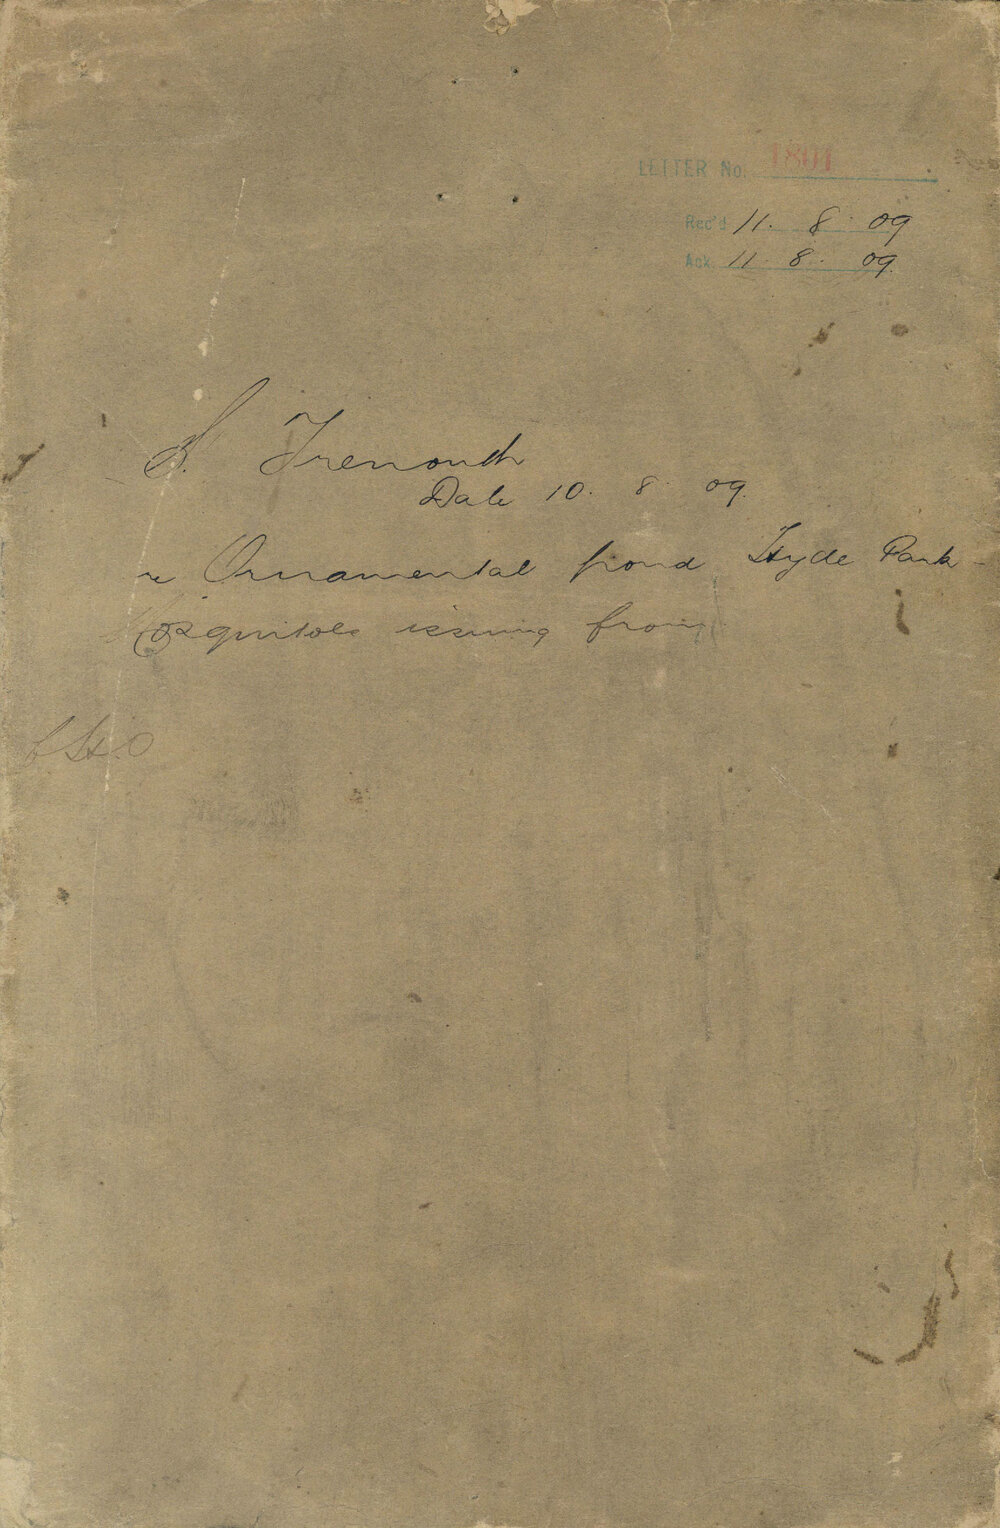 LETTER No. 1801
Rec'd 11. 8. 09
Ack. 11. 8. 09.
S. Trenouth
Date 10. 8. 09.
re Ornamental pond Hyde Park -
Mosquitoes issuing from